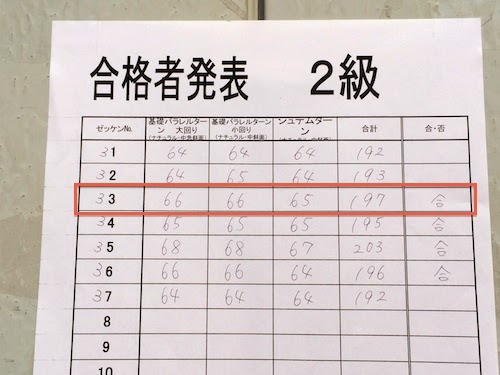 合格者発表 2級
ゼッケンNo. 基礎パラレルターン 大回り (ナチュラル・中急斜面) 基礎パラレルターン 小回り (ナチュラル・中斜面) シュテムターン 合計 合・否
31 64 64 64 192
32 64 65 64 193
33 66 66 65 197 合
34 65 65 65 195 合
35 68 68 67 203 合
36 66 66 64 196 合
37 64 64 64 192
8
9
10